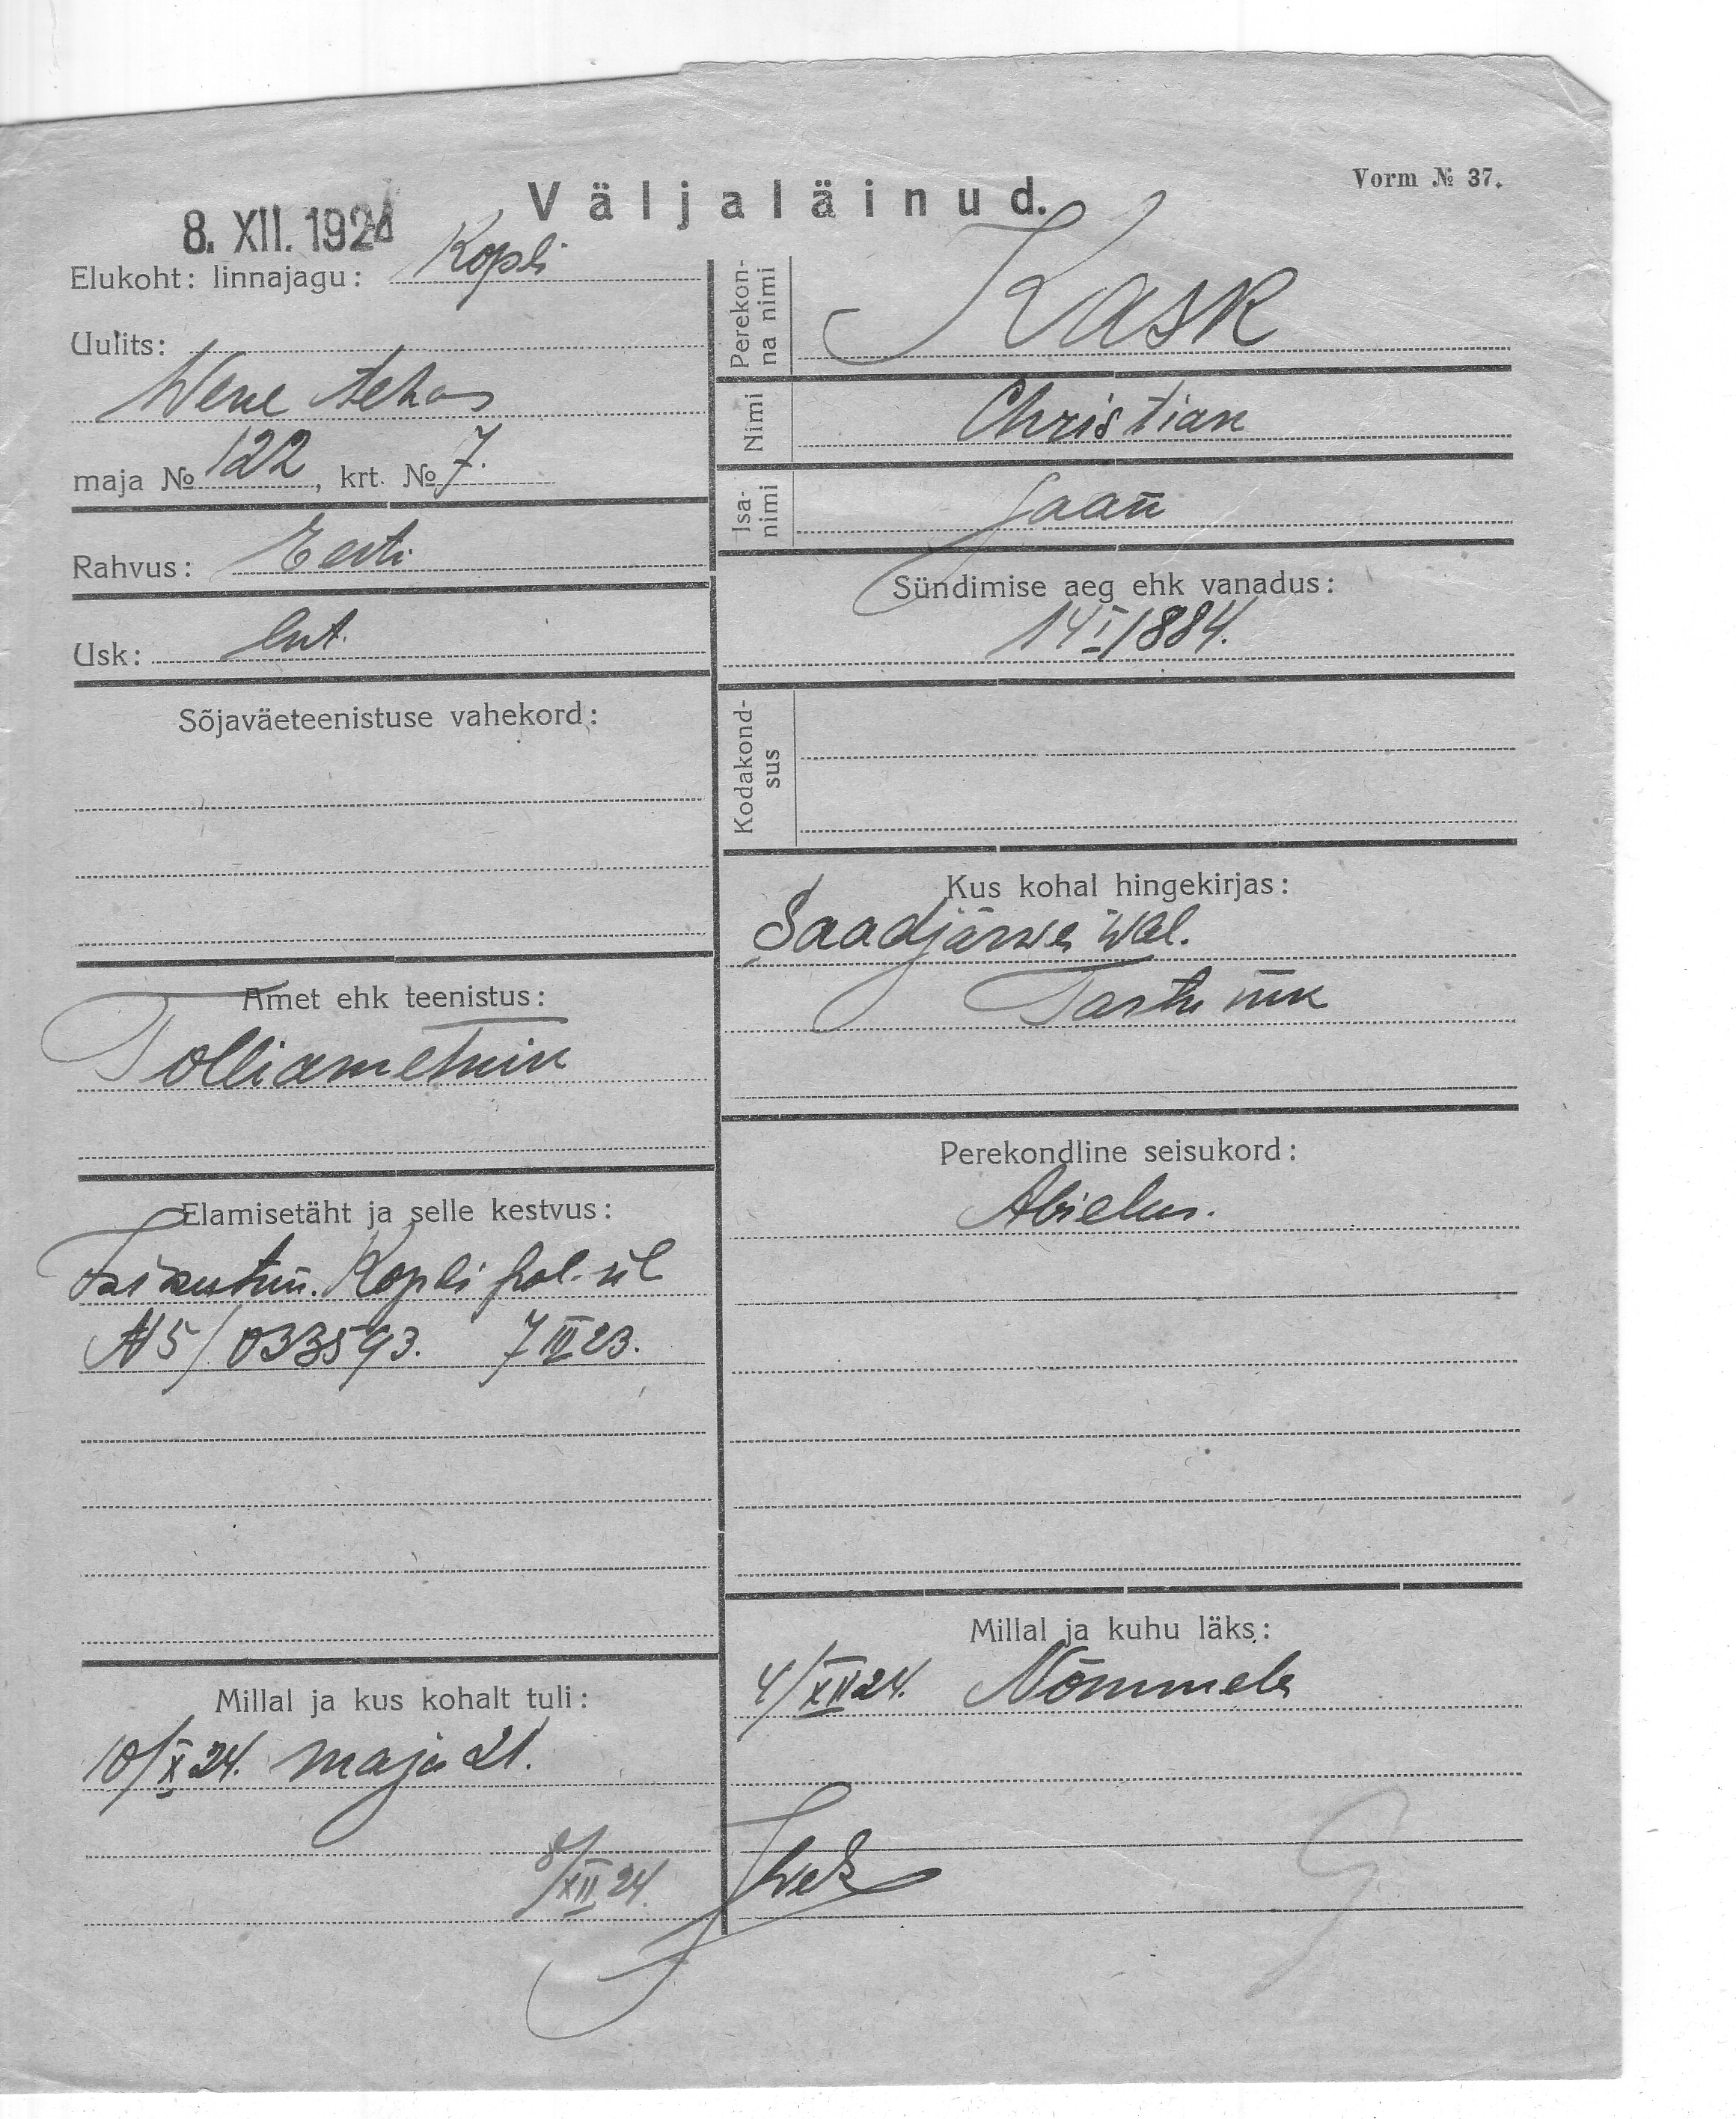 Vorm № 37.
Väljaläinud.
8. XII. 1924
Elukoht: linnajagu: Kopli
Uulits:
Wene tehas
maja № 122, krt. № 7.
Rahvus: Eesti
Usk: lut.
Sõjaväeteenistuse vahekord:
Amet ehk teenistus:
Tolliametnik
Elamisetäht ja selle kestvus:
Isikutun. Kopli pol. ül
A 5/033593. 7 III 23.
Millal ja kus kohalt tuli:
10/X 24. maja 21.
8/XII 24.
Perekonna nimi
Kask
Nimi
Christian
Isanimi
Jaan
Sündimise aeg ehk vanadus:
14 I 1884.
Kodakondsus
Kus kohal hingekirjas:
Saadjärwe wal.
Tartu mk
Perekondline seisukord:
Abielus.
Millal ja kuhu läks:
4/XII 24. Nõmmele